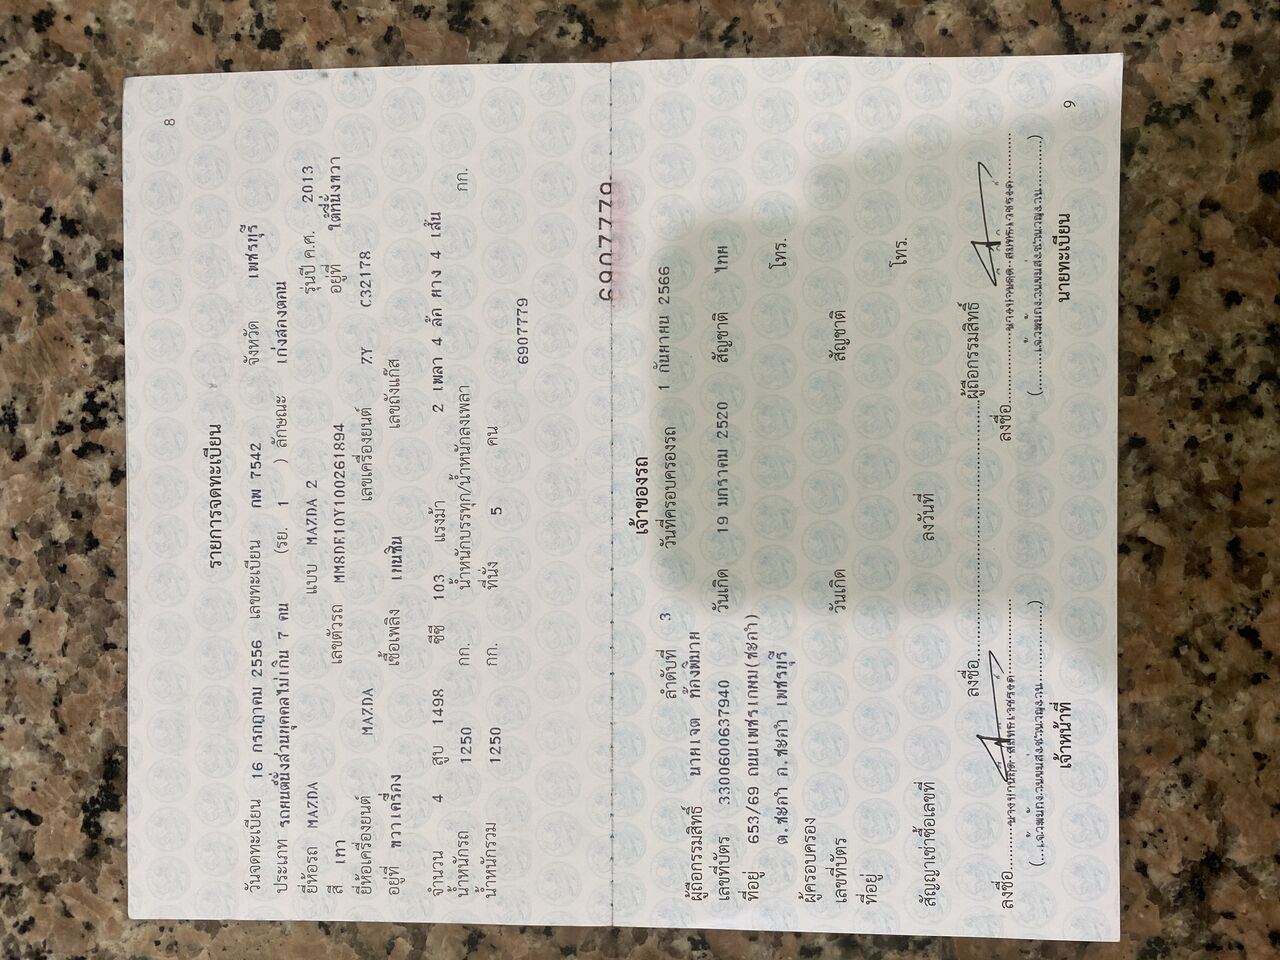 8
รายการจดทะเบียน
วันจดทะเบียน 16 กรกฎาคม 2556 เลขทะเบียน กพ 7542 จังหวัด เพชรบุรี
ประเภท รถยนต์นั่งส่วนบุคคลไม่เกิน 7 คน (รย. 1 ) ลักษณะ เก๋งสองตอน
ยี่ห้อรถ MAZDA แบบ MAZDA 2 รุ่นปี ค.ศ. 2013
สี เทา เลขตัวรถ MM8DE10Y100261894 อยู่ที่ ใต้ที่นั่งขวา
ยี่ห้อเครื่องยนต์ MAZDA เลขเครื่องยนต์ ZY C32178
อยู่ที่ ขวาเครื่อง เชื้อเพลิง เบนซิน เลขถังแก๊ส
จำนวน 4 สูบ 1498 ซีซี 103 แรงม้า 2 เพลา 4 ล้อ ยาง 4 เส้น
น้ำหนักรถ 1250 กก. น้ำหนักบรรทุก/น้ำหนักลงเพลา กก.
น้ำหนักรวม 1250 กก. ที่นั่ง 5 คน
6907779
6907779
เจ้าของรถ
ลำดับที่ 3 วันที่ครอบครองรถ 1 กันยายน 2566
ผู้ถือกรรมสิทธิ์ นายเจต
เลขที่บัตร 3300600637940 วันเกิด 19 มกราคม 2520 สัญชาติ ไทย
ที่อยู่ 653/69 ถนนเพชรเกษม(ชะอำ)
ต.ชะอำ อ.ชะอำ เพชรบุรี โทร.
ผู้ครอบครอง
เลขที่บัตร วันเกิด สัญชาติ
ที่อยู่ โทร.
สัญญาเช่าซื้อเลขที่ ลงวันที่
ลงชื่อ ผู้ถือกรรมสิทธิ์
ลงชื่อ ลงชื่อ
เจ้าหน้าที่ นายทะเบียน
9